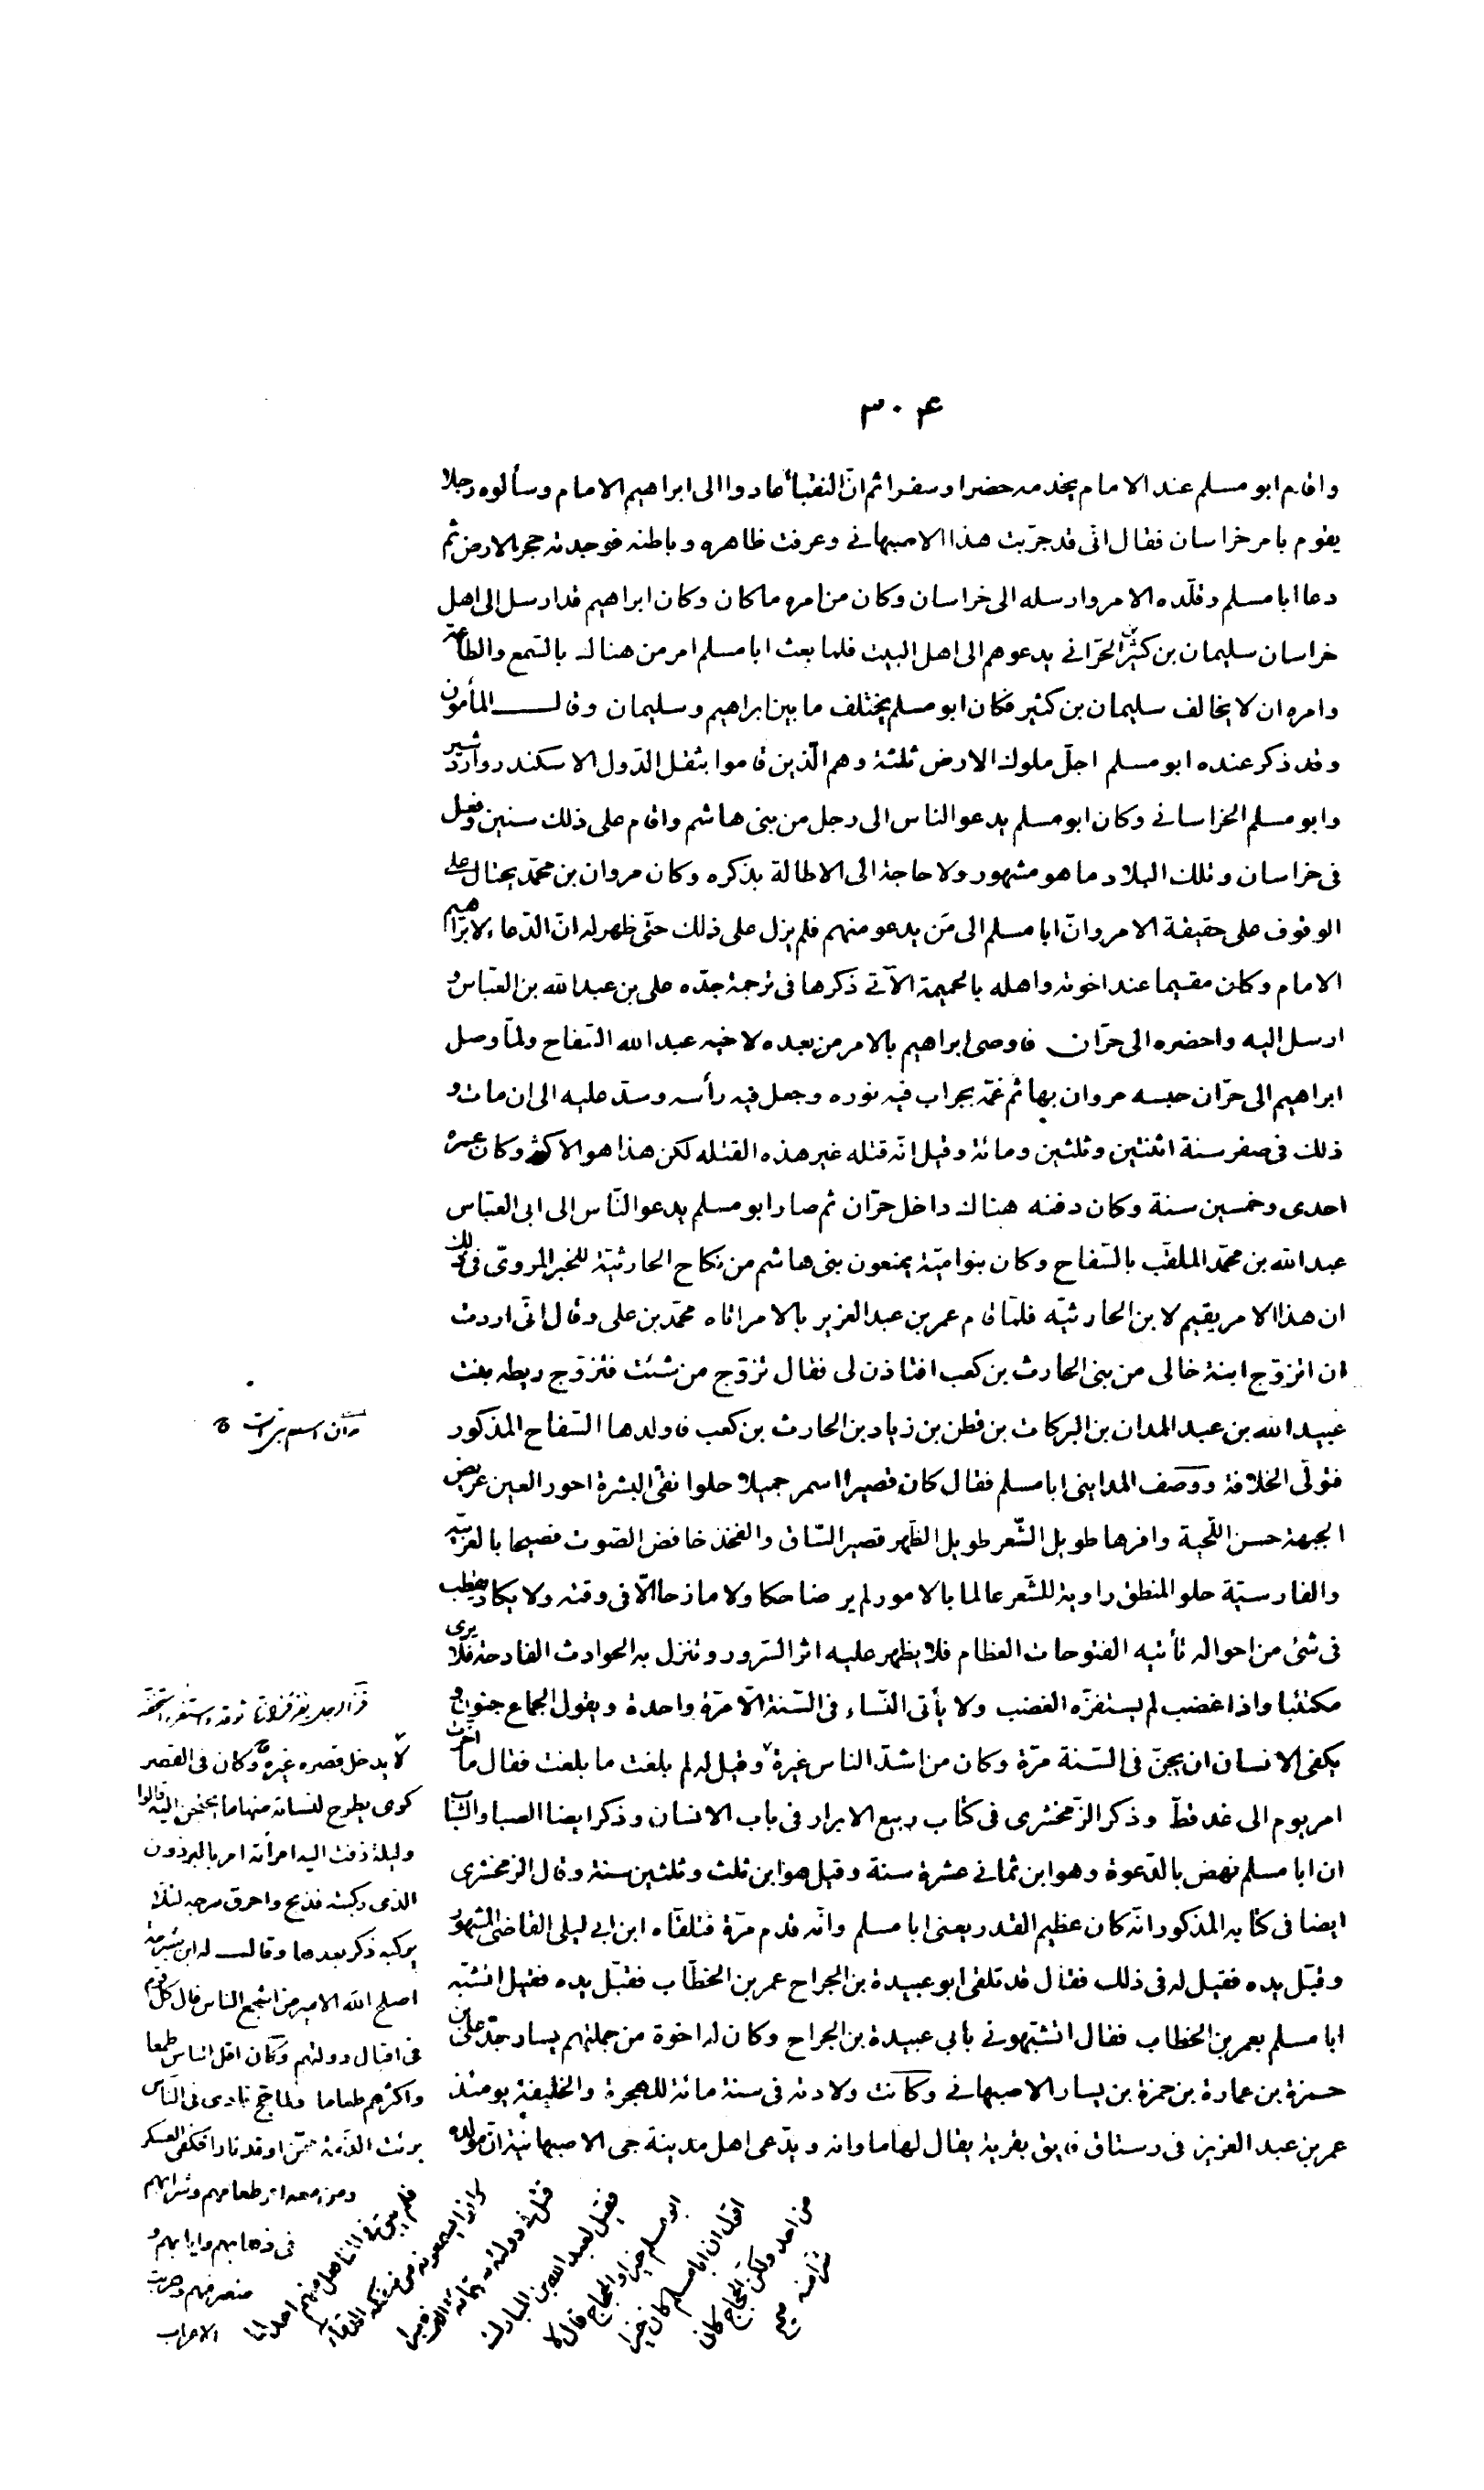 ٣٠۴
واقام ابو مسلم عند الامام يخدمه حضرا وسفرا ثم انّ النقباء عادوا الى ابراهيم الامام وسألوه رجلا
يقوم بامر خراسان فقال انّى قد جرّبت هذا الاصبهانى وعرفت ظاهره وباطنه فوجدته حجر الارض ثم
دعا ابا مسلم وقلّده الامر وارسله الى خراسان وكان من امره ما كان وكان ابراهيم قد ارسل الى اهل
خراسان سليمان بن كثير الحرّانى يدعوهم الى اهل البيت فلما بعث ابا مسلم امر من هناك بالسّمع والطاعة
وامره ان لا يخالف سليمان بن كثير فكان ابو مسلم يختلف ما بين ابراهيم وسليمان وقال المأمون
وقد ذكر عنده ابو مسلم اجلّ ملوك الارض ثلثة وهم الّذين قاموا بثقل الدّول الاسكندر واردشير
وابو مسلم الخراسانى وكان ابو مسلم يدعو الناس الى رجل من بنى هاشم واقام على ذلك سنين وفعل
فى خراسان وتلك البلاد ما هو مشهور ولا حاجة الى الاطالة بذكره وكان مروان بن محمّد يحتال على
الوقوف على حقيقة الامر وانّ ابا مسلم الى مَن يدعو منهم فلم يزل على ذلك حتّى ظهر له انّ الدّعاء لابراهيم
الامام وكان مقيما عند اخوته واهله بالحميمة الآتى ذكرها فى ترجمة جدّه على بن عبد الله بن العبّاس و
ارسل اليه واحضره الى حرّان فاوصى ابراهيم بالامر من بعده لاخيه عبد الله السّفاح ولمّا وصل
ابراهيم الى حرّان حبسه مروان بها ثم غمّه بجراب فيه نوره وجعل فيه رأسه وسدّ عليه الى ان مات و
ذلك فى صفر سنة اثنتين وثلثين ومائة وقيل انّه قتله غير هذه القتله لكن هذا هو الاكثر وكان عمره
احدى وخمسين سنة وكان دفنه هناك داخل حرّان ثم صار ابو مسلم يدعو النّاس الى ابى العبّاس
عبد الله بن محمّد الملقّب بالسّفاح وكان بنو اميّة يمنعون بنى هاشم من نكاح الحارثيّة للخبر المروىّ فى ذلك
ان هذا الامر يقيم لابن الحارثيّه فلمّا قام عمر بن عبد العزيز بالامر اتاه محمّد بن على وقال انّى اردت
ان اتزوّج ابنة خالى من بنى الحارث بن كعب افتاذن لى فقال تزوّج من شئت فتزوّج ريطه بنت
عبيد الله بن عبد المدان بن البركات بن قطن بن زياد بن الحارث بن كعب فاولدها السّفاح المذكور
فتولّى الخلافة ووصف المداينى ابا مسلم فقال كان قصيرا اسمر جميلا حلوا نقىّ البشرة احور العين عريض
الجبهة حسن اللّحية وافرها طويل الشّعر طويل الظّهر قصير السّاق والفخذ خافض الصّوت فصيحا بالعربيّه
والفارسيّة حلو المنطق راوية للشّعر عالما بالامور لم ير ضاحكا ولا مازحا الّا فى وقته ولا يكاد يقطب
فى شئ من احواله تأتيه الفتوحات العظام فلا يظهر عليه اثر السّرور وتنزل به الحوادث الفادحة فلا يرى
مكتئبا واذا غضب لم يستفزّه الغضب ولا يأتى النّساء فى السّنة الّا مرّة واحدة ويقول الجماع جنون و
يكفى الانسان ان يجنّ فى السّنة مرّة وكان من اشدّ الناس غيرة وقيل له لم بلغت ما بلغت فقال ما اخّرت
امر يوم الى غد قطّ وذكر الزّمخشرى فى كتاب ربيع الابرار فى باب الانسان وذكر ايضا الصبا والشباب
ان ابا مسلم نهض بالدّعوة وهو ابن ثمانى عشرة سنة وقيل هو ابن ثلث وثلثين سنة وقال الزمخشرى
ايضا فى كتابه المذكور انّه كان عظيم القدر يعنى ابا مسلم وانّه قدم مرّة فتلقّاه ابن ابى ليلى القاضى المشهور
وقبّل يده فقيل له فى ذلك فقال قد تلقى ابو عبيدة بن الجراح عمر بن الخطّاب فقبّل يده فقيل اتشبّه
ابا مسلم بعمر بن الخطاب فقال اتشبّهونى بابى عبيدة بن الجراح وكان له اخوة من جملتهم يسار جدّ على بن
حمزة بن عمارة بن حمزة بن يسار الاصبهانى وكانت ولادته فى سنة مائة للهجرة والخليفة يومئذ
عمر بن عبد العزيز فى رستاق فايق بقرية يقال لها ماوانه ويدّعى اهل مدينة جى الاصبهانيّة انّ مولده
لا يدخل قصره غيره وكان فى القصر
كوى يطرح لنسائه منها ما يحتجن اليه قالوا
وليلة زفت اليه امرأته امر بالبرذون
الذى ركبته فذبح واحرق سرجه لئلا
يركبه ذكر بعدها وقال له ابن شبرمة
اصلح الله الامير من اشجع الناس قال كل قوم
فى اقبال دولتهم وكان اقل الناس طمعا
واكثرهم طعاما ولما حج نادى فى الناس
برئت الذمة ممن اوقد نارا فكفى العسكر
ومن معه امر طعامهم وشرابهم
فى ذهابهم وايابهم و
منصرفهم وهربت
الاعراب
فلم يبق فى المناهل منهم احد لما
كانوا يسمعونه من سفكه الدماء
قتل فى دولته ستمائة الف صبرا
فقيل لعبد الله بن المبارك
ابو مسلم خير او الحجاج قال لا
اقول ان ابا مسلم كان خيرا
من احد ولكن الحجاج كان
شرا منه صح